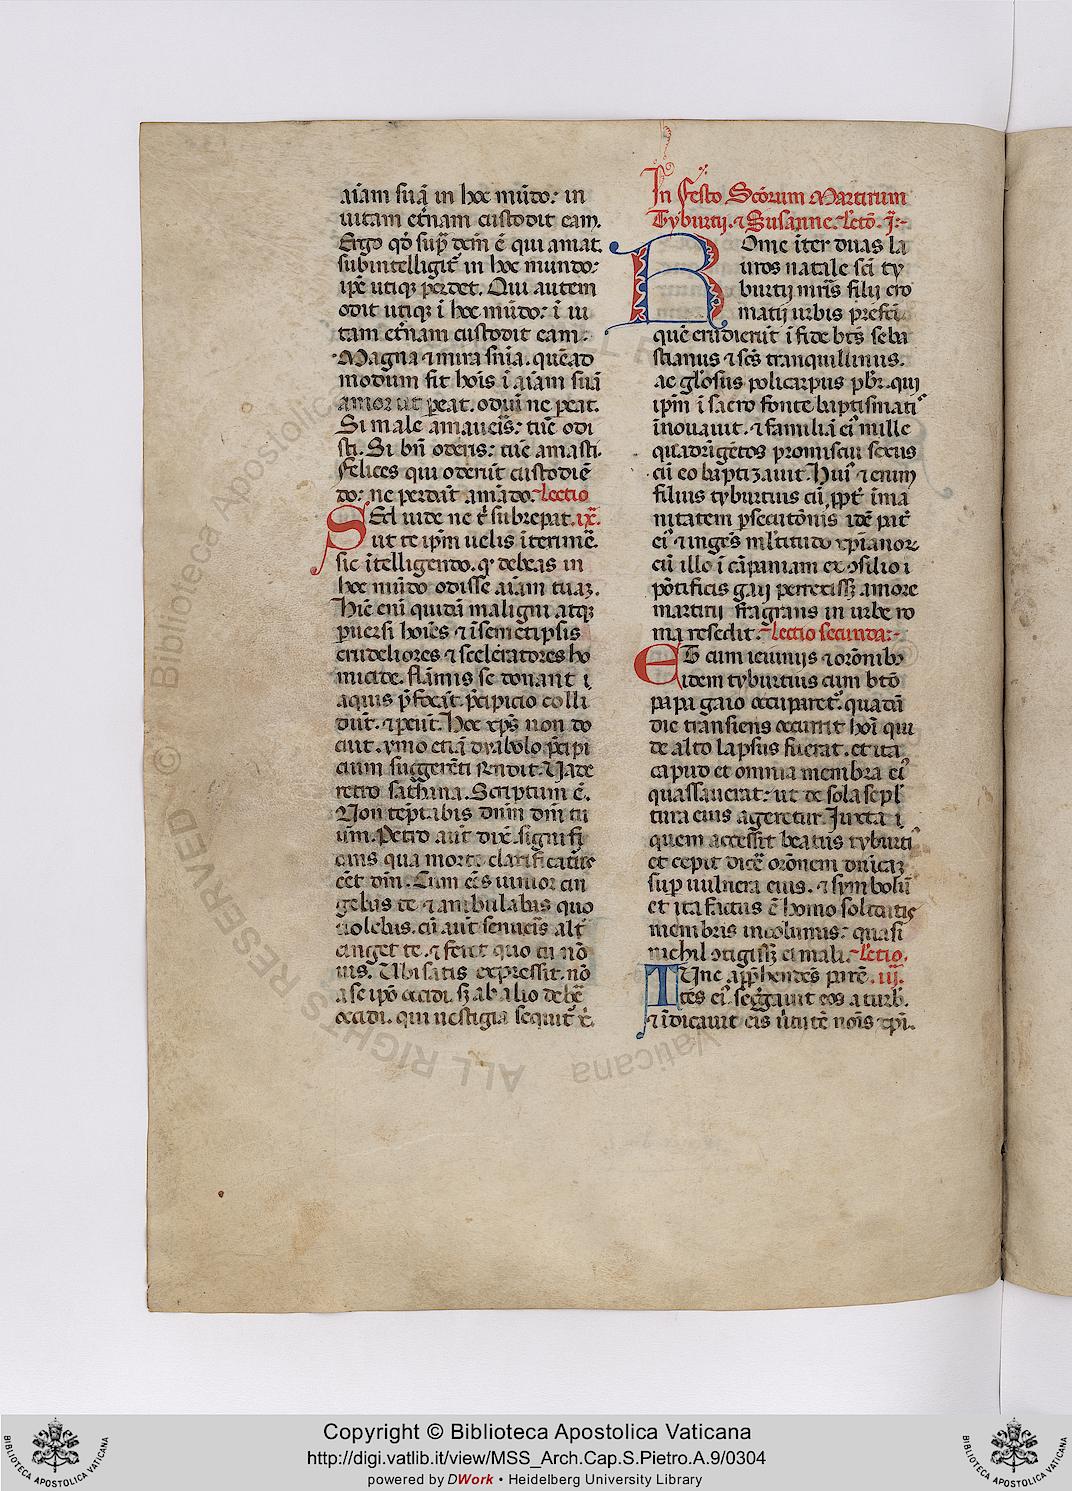 aīam suā in hoc mūdo: in
uitam et̄nam custodit eam.
Ergo qd̄ suꝑ dcm̄ ē qui amat.
subintelligit᷑ in hoc mundo:
ip̄e utiqꝫ perdet. Qui autem
odit utiqꝫ ī hoc mūdo: ī ui
tam et̄nam custodit eam.
Magna ⁊ mira sn̄ia. quēad
modum sit hoīs ī aīam suā
amor ut ꝑeat. odiuꝫ ne ꝑeat.
Si male amaueris: tūc odi
sti. Si bn̄ oderis: tūc amasti.
Felices qui oderūt custodiē
do: ne perdāt amādo. Lectio
Sed uide ne t᷑ subrepat. ix.
ut te ip̄m uelis īterime.
sic ītelligendo. ꝙ debeas in
hoc mūdo odisse aīam tuaꝫ.
Hīc eni quidā maligni atqꝫ
ꝑuersi hoīes ⁊ ī semetipsis
crudeliores ⁊ sceleratores ho
micide. flāmis se donant i
aquis p̄focāt. p̄cipicio colli
dūt. ⁊ ꝑeūt. Hoc xp̄s non do
cuit. ymo etiā dyabolo p̄cipi
cium suggerēti rn̄dit. Uade
retro sathana. Scriptum ē.
Non tēptabis dnm̄ dm̄ tu
um. Petro aūt dix̄. signifi
cans qua morte clarificatur᷑
eēt dm̄. Cum eēs iunior cin
gebas te ⁊ ambulabas quo
uolebas. cū aūt senueris alt᷑
cinget te. ⁊ feret quo tu nō
uis. Ubi satis expressit. nō
a se ip̄o occidi. sꝫ ab alio debē
occidi. qui uestigia sequit᷑ x̄.
In festo Scōrum Martirum
Tyburtij. ⁊ Susanne. Lectō. j.
Rome īter duas la
uros natale scī ty
burtij mr̄is filij cro
matij urbis prefecī
quē erudierūt ī fide bt̄s seba
stianus ⁊ scs̄ tranquillinus.
ac gl̄osus policarpus pbr̄. qui
ip̄m ī sacro fonte baptismatis
īnouauit. ⁊ familiā eiꝰ mille
quadrigētos promiscui sexus
cū eo baptizauit. Huiꝰ etenim
filius tyburtius cū ꝓpt᷑ īma
nitatem ꝑsecutōnis idē pat᷑
eiꝰ ⁊ ingēs ml̄titudo xp̄ianoꝝ
cū illo ī cāpaniam ex ↄsilio i
pōtificis gaij perrexissꝫ amore
martirij fragrans in urbe ro
ma resedit. Lectio secunda:
Et cum ieiunijs ⁊ orōnibꝰ
idem tyburtius cum btō
papa gaio occuparet᷑. quadā
die transiens occurrit hoī qui
de alto lapsus fuerat. et ita
capud et omnia membra eiꝰ
quassauerat: ut de sola sepl̄
tura eius ageretur. Iuxta i
quem accessit beatus tyburtiꝰ
et cepit dicē orōnem dnīcaꝫ
suꝑ uulnera eius. ⁊ symbolū
et ita factus ē homo solidatis
membris incolumis: quasi
nichil ↄtigissꝫ ei mali. Lectio.
Tūnc app̄hendēs parē. iij.
tēs eiꝰ. seḡgauit eos a turbꝭ.
⁊ īdicauit eis u̾tutē noīs xp̄i.
Copyright © Biblioteca Apostolica Vaticana
http://digi.vatlib.it/view/MSS_Arch.Cap.S.Pietro.A.9/0304
powered by DWork • Heidelberg University Library